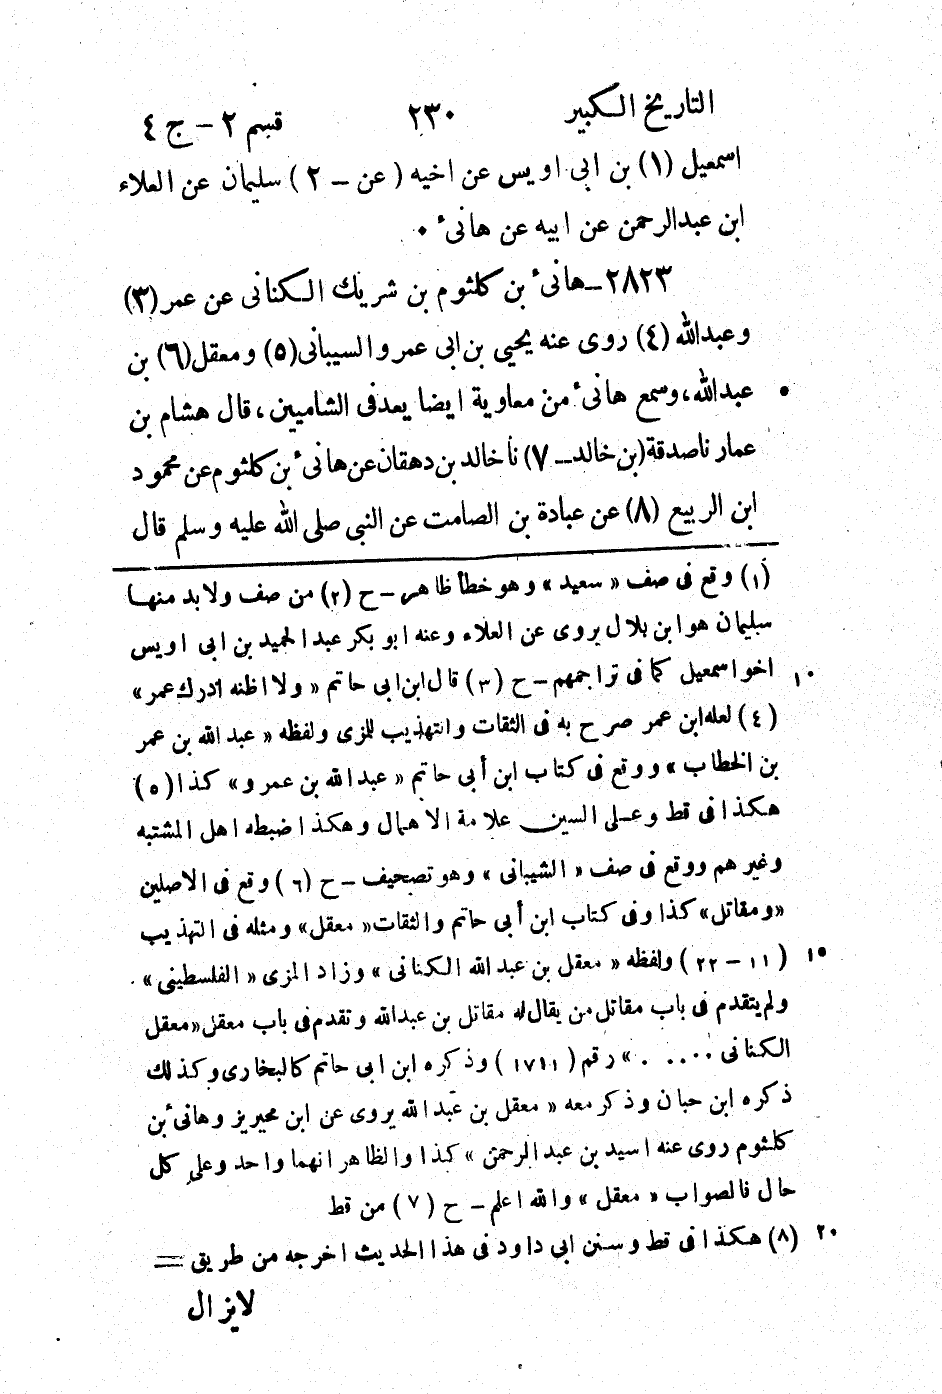 التاريخ الكبير ٢٣٠ قسم ٢ – ج ٤
اسمعيل (١) بن ابى اويس عن اخيه (عن – ٢) سليمان عن العلاء
ابن عبدالرحمن عن ابيه عن هانىء .
٢٨٢٣ – هانىء بن كلثوم بن شريك الكنانى عن عمر (٣)
وعبدالله (٤) روى عنه يحيى بن ابى عمرو السيبانى (٥) ومعقل (٦) بن
عبدالله، وسمع هانىء من معاوية ايضا يعد فى الشاميين، قال هشام بن
عمار نا صدقة (بن خالد – ٧) نا خالد بن دهقان عن هانىء بن كلثوم عن محمود
ابن الربيع (٨) عن عبادة بن الصامت عن النبى صلى الله عليه وسلم قال
(١) وقع فى صف « سعيد » وهو خطأ ظاهر – ح (٢) من صف ولابد منها
سليمان هو ابن بلال يروى عن العلاء وعنه ابو بكر عبد الحميد بن ابى اويس
اخو اسمعيل كما فى تراجمهم – ح (٣) قال ابن ابى حاتم « ولا اظنه ادرك عمر » ١٠
(٤) لعله ابن عمر صرح به فى الثقات والتهذيب للمزى ولفظه « عبد الله بن عمر
بن الخطاب » ووقع فى كتاب ابن أبى حاتم « عبد الله بن عمرو » كذا (٥)
هكذا فى قط وعلى السين علامة الاهمال وهكذا ضبطه اهل المشتبه
وغيرهم ووقع فى صف « الشيبانى » وهو تصحيف – ح (٦) وقع فى الاصلين
« ومقاتل » كذا وفى كتاب ابن أبى حاتم والثقات « معقل » ومثله فى التهذيب
(١١ – ٢٢) ولفظه « معقل بن عبد الله الكنانى » وزاد المزى « الفلسطينى » . ١٥
ولم يتقدم فى باب مقاتل من يقال له مقاتل بن عبدالله وتقدم فى باب معقل « معقل
الكنانى ..... » رقم (١٧١١) وذكره ابن ابى حاتم كالبخارى وكذلك
ذكره ابن حبان وذكر معه « معقل بن عبد الله يروى عن ابن محيريز وهانىء بن
كلثوم روى عنه اسيد بن عبد الرحمن » كذا والظاهر انهما واحد وعلى كل
حال فالصواب « معقل » والله اعلم – ح (٧) من قط
(٨) هكذا فى قط وسنن ابى داود فى هذا الحديث اخرجه من طريق = ٢٠
لايزال